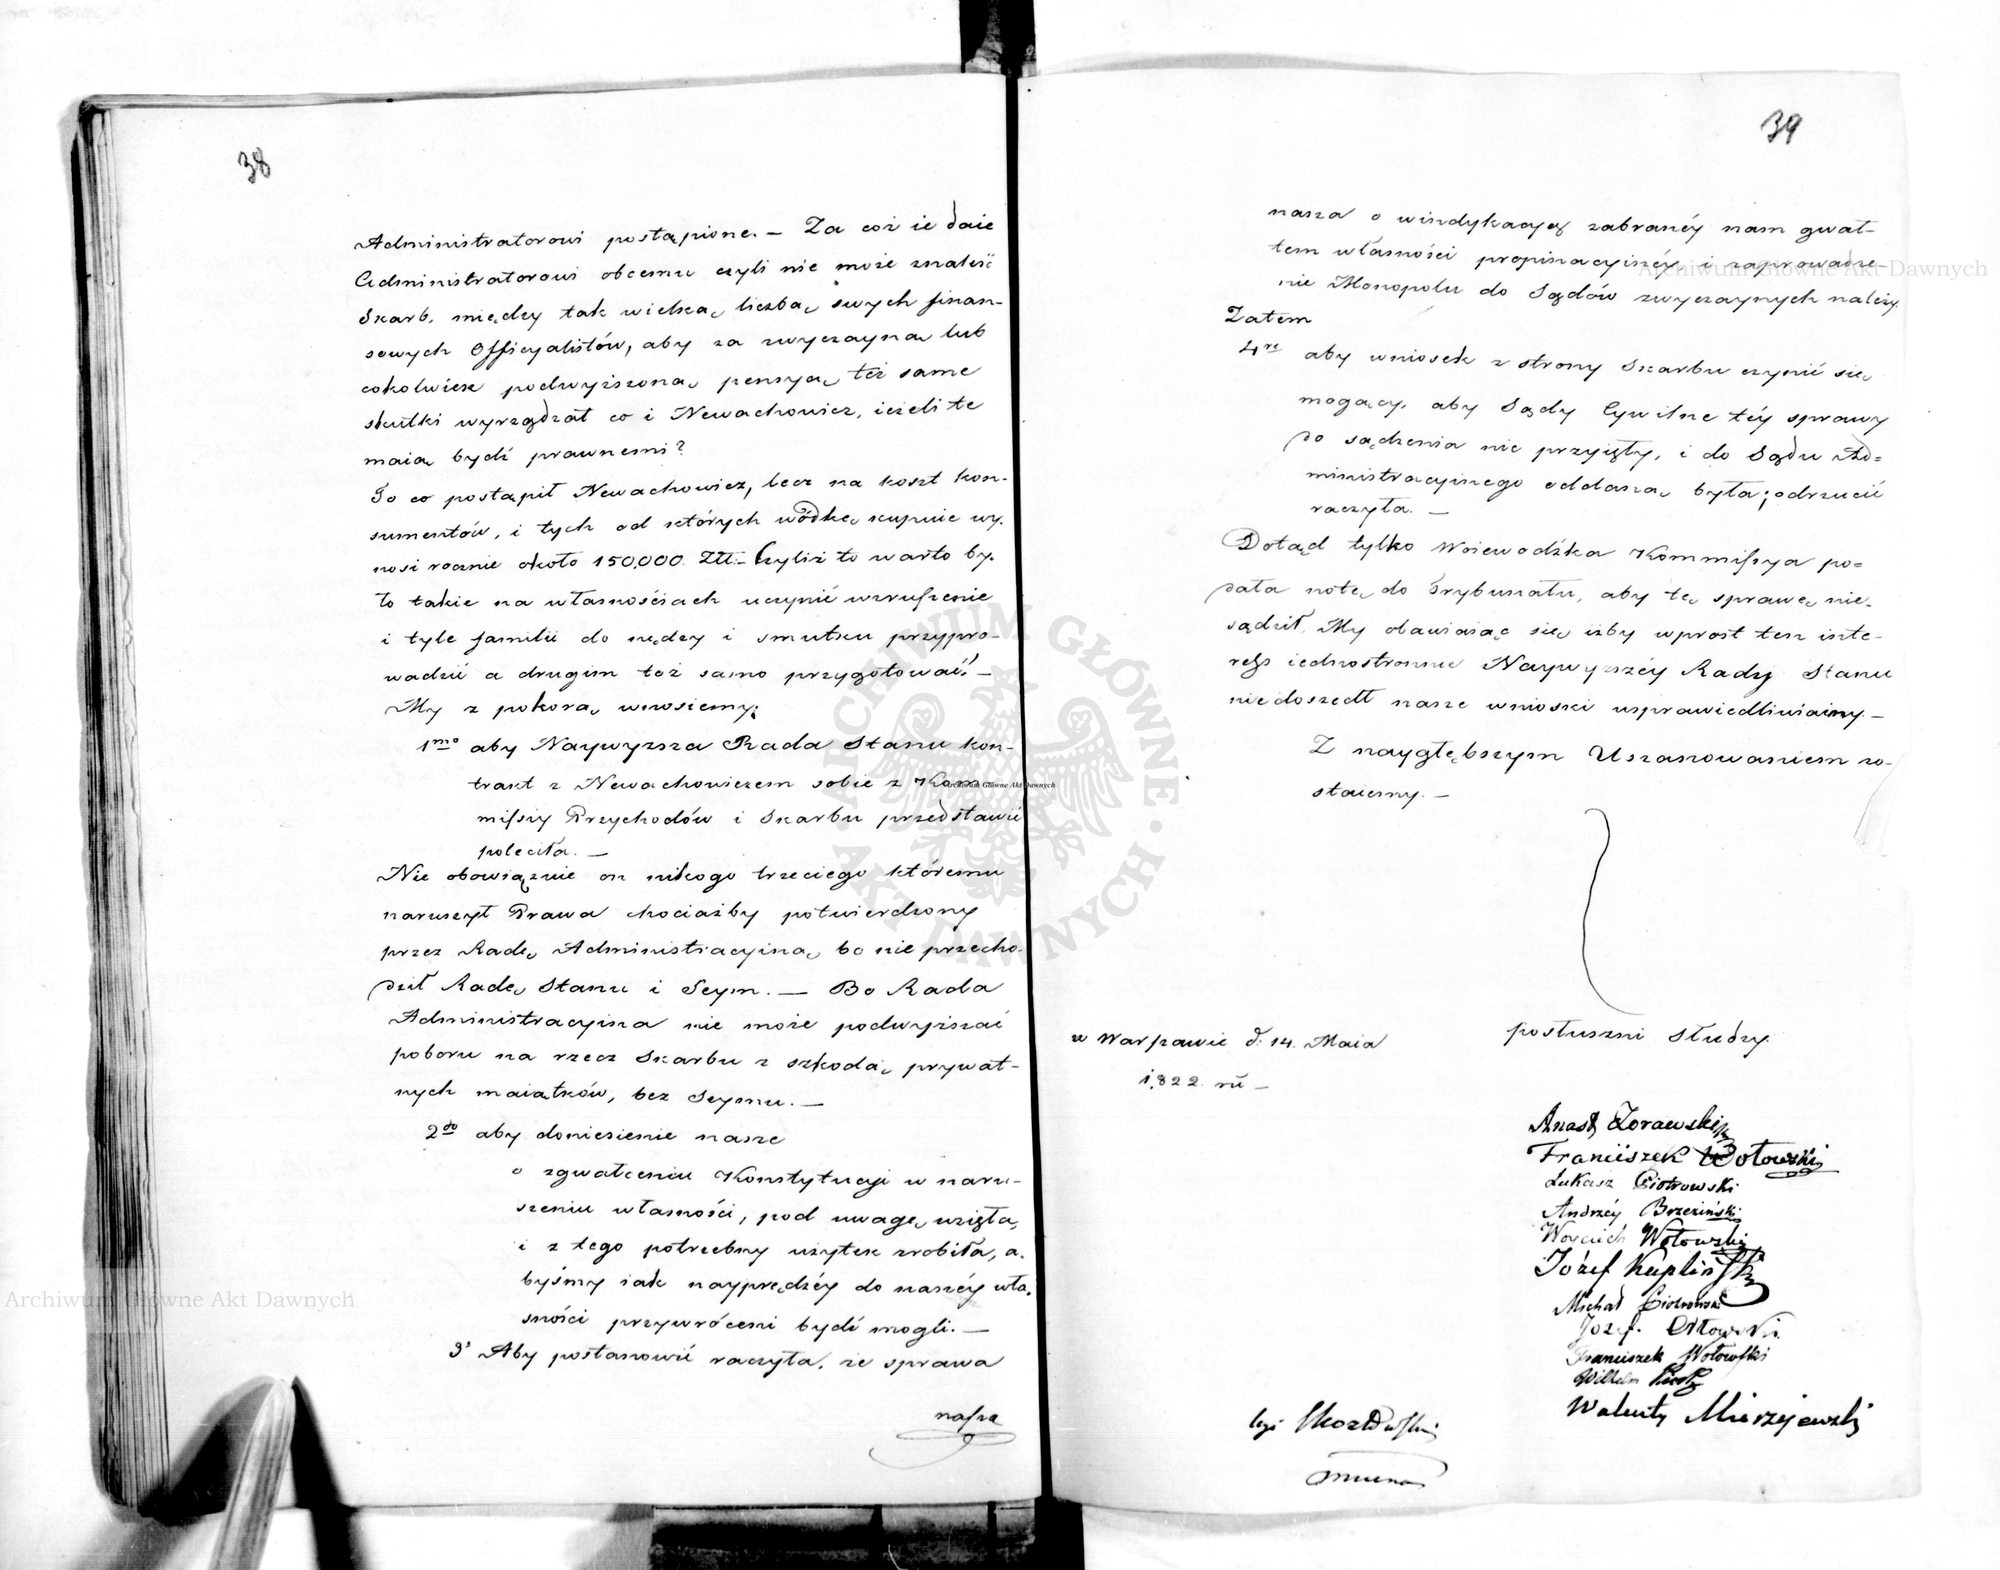 38
Administratorowi postąpione. — Za coż ie daie
Administratorowi obcemu czyli nie może znaleść
Skarb, między tak wielką liczbą swych finan-
sowych Officyalistów, aby za zwyczayną lub
cokolwiek podwyższoną pensyą też same
skutki wyrządzał co i Newachowicz, ieżeli te
maią bydź prawnemi?
To co postąpił Newachowicz, lecz na koszt kon-
sumentów, i tych od których wódkę kupuie wy-
nosi rocznie około 150,000 Złł. — Czyliż to warto by-
ło takie na własnościach uczynić wzruszenie
i tyle familii do nędzy i smutku przypro-
wadzić a drugim też samo przygotować! —
My z pokorą wnosiemy:
1mo aby Naywyższa Rada Stanu kon-
trakt z Newachowiczem sobie z Kom-
missyi Przychodów i Skarbu przedstawić
poleciła. —
Nie obowiązuie on nikogo trzeciego któremu
naruszył Prawa chociażby potwierdzony
przez Radę Administracyiną, bo nie przecho-
dził Radę Stanu i Seym. — Bo Rada
Administracyina nie może podwyższać
poboru na rzecz Skarbu z szkodą prywat-
nych maiątków, bez Seymu. —
2do aby doniesienie nasze
o zgwałceniu Konstytucyi w naru-
szeniu własności, pod uwagę wzięła,
i z tego potrzebny użytek zrobiła, a-
byśmy iak nayprędzéy do naszéy wła-
sności przywróceni bydź mogli. —
3° Aby postanowić raczyła, że sprawa
nasza
39
nasza o windykacyą zabranéy nam gwał-
tem własności propinacyinéy i zaprowadze-
nie Monopolu do Sądów zwyczaynych należy.
Zatem
4re aby wniosek z strony Skarbu czynić się
mogący, aby Sądy Cywilne téy sprawy
do sądzenia nie przyięły, i do Sądu Ad-
ministracyinego oddaną była; odrzucić
raczyła. —
Dotąd tylko Woiewódzka Kommissya po-
dała notę do Trybunału, aby tę sprawę nie-
sądził, My obawiaiąc się iżby wprost ten inte-
ress iednostronnie Naywyższéy Rady Stanu
niedoszedł nasze wnioski usprawiedliwiamy —
Z naygłębszym Uszanowaniem zo-
staiemy. —
w Warszawie d. 14. Maia
1,822 ru —
posłuszni Słudzy
Anast Zorawski
Franciszek Wołowski
Łukasz Piotrowski
Andrzéy Brzeziński
Woyciech Wołowski
Józef Kapliński
Michał Piotrowski
Jozef
Franciszek Wołowski
Wilhelm
Walenty Mierzejewski